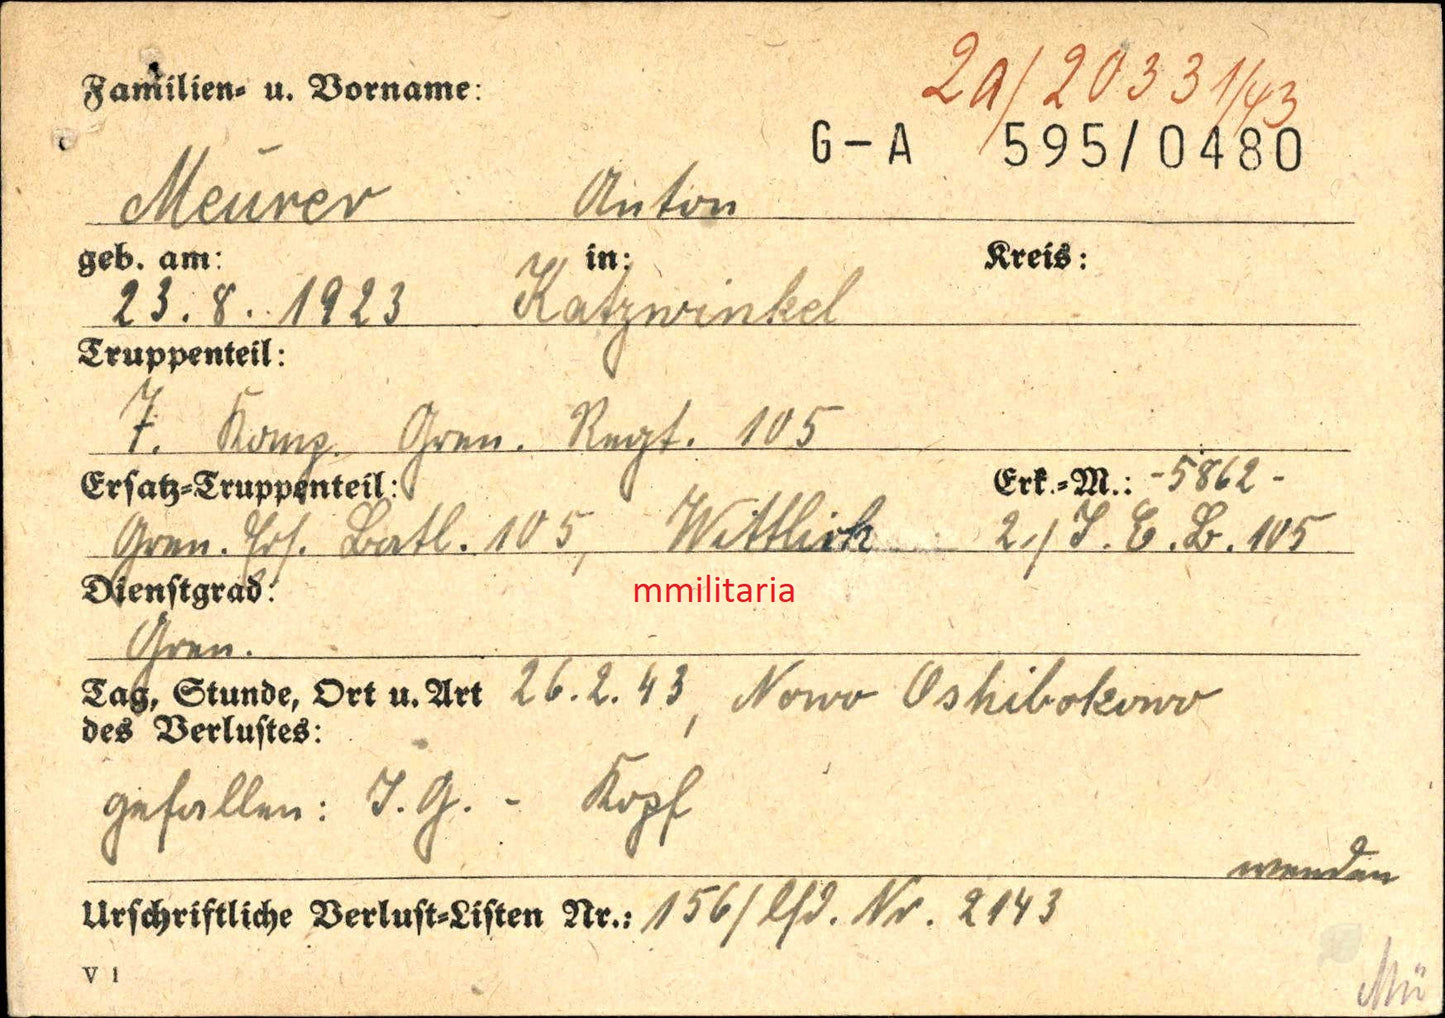 2a/2033 1/43
Familien- u. Vorname:
G-A 595/0480
Meurer Anton
geb. am: in: Kreis:
23. 8. 1923 Katzwinkel
Truppenteil:
7. Komp. Gren. Regt. 105
Ersatz-Truppenteil: Erk.-M.: -5862-
Gren. Ers. Batl. 105, Wittlich 2./I.E.B. 105
Dienstgrad:
mmilitaria
Gren.
Tag, Stunde, Ort u. Art 26.2.43, Nowo Oshibokowo
des Verlustes:
gefallen: I.G. - Kopf
wenden
Urschriftliche Verlust-Listen Nr.: 156/lfd. Nr. 2143
V 1
Mü